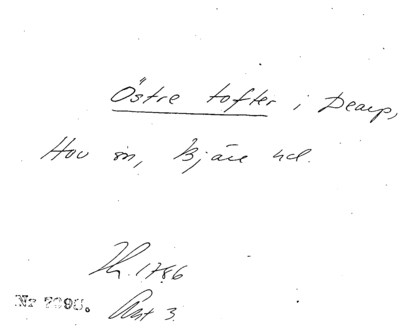 Östre tofter i Dearp,
Hov sn, Bjäre hd.
H. 1786
Nr 7690. Akt 3.